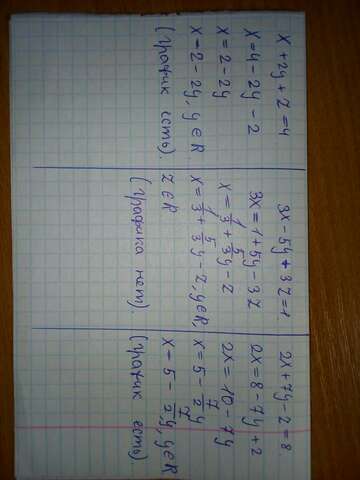 x + 2y + 2 = 4
x = 4 - 2y - 2
x = 2 - 2y
x = 2 - 2y, y ∈ R
(График есть).
3x - 5y + 3z = 1.
3x = 1 + 5y - 3z
x = 1/3 + 5/3y - z
x = 1/3 + 5/3y - z, y ∈ R,
z ∈ R
(Графика нет).
2x + 7y - 2 = 8.
2x = 8 - 7y + 2
2x = 10 - 7y
x = 5 - 7/2y
x = 5 - 7/2y, y ∈ R
(График есть)